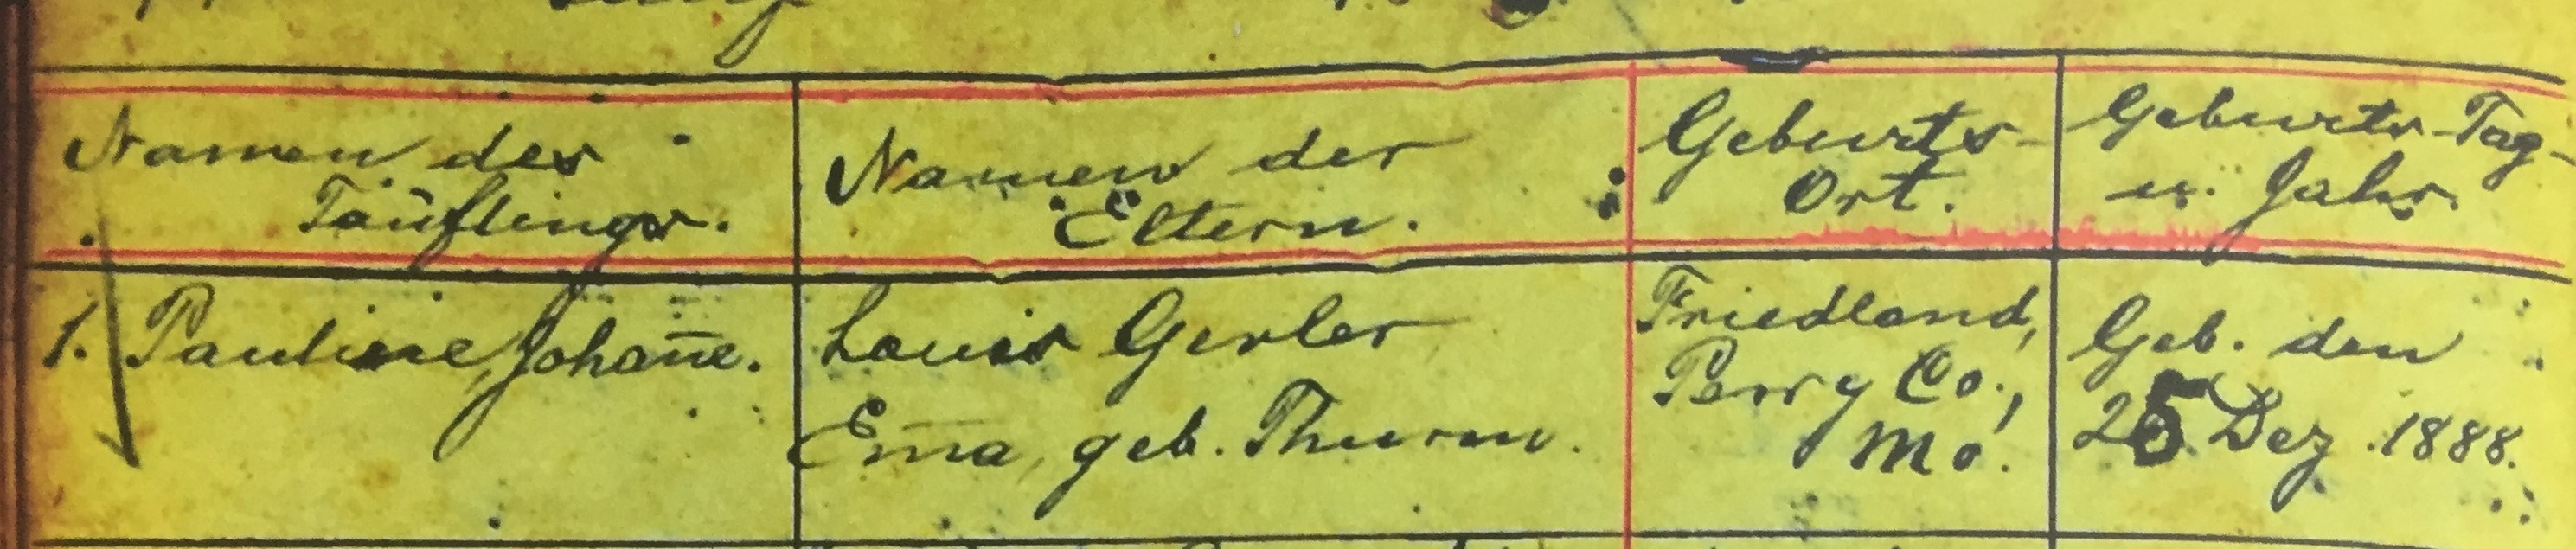 Namen des
Täuflings.
Namen der
Eltern.
Geburts-
Ort.
Geburts-Tag-
u. Jahr.
1. Pauline Johan̄e.
Louis Gerler
Em̄a, geb. Thurm.
Friedland,
Perry Co.,
Mo.
Geb. den
25 Dez. 1888.